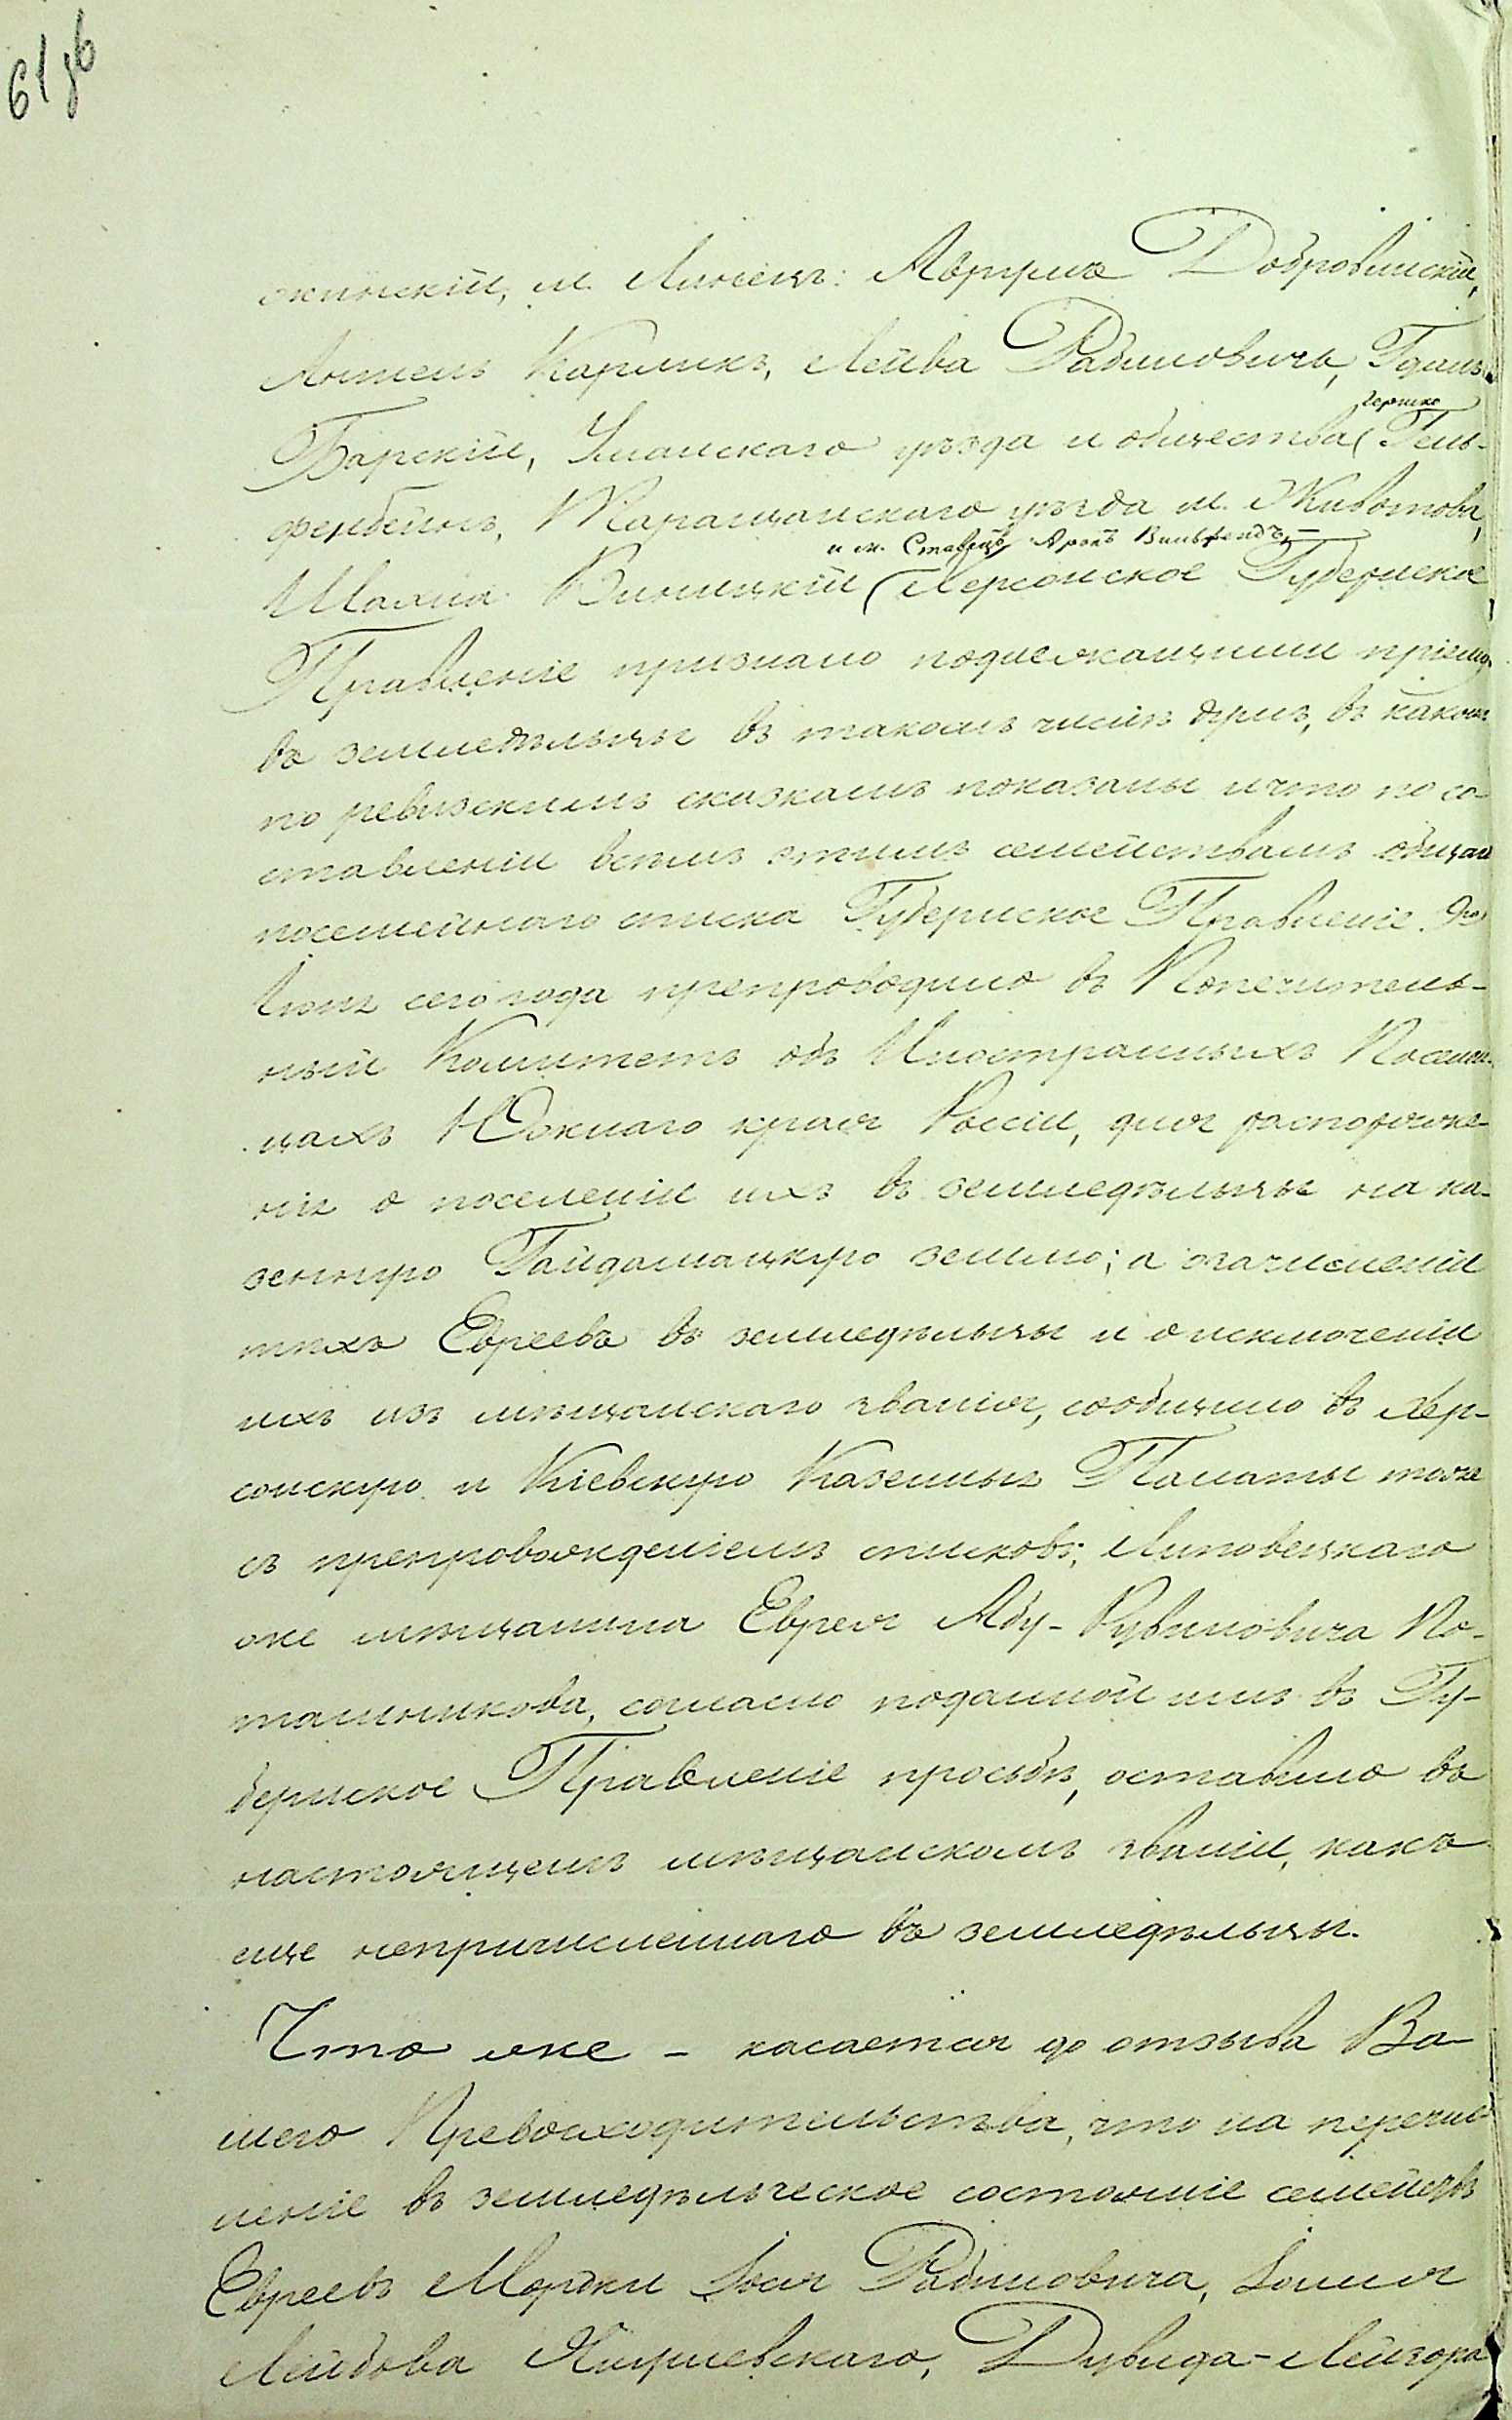 61 об
жинскій, м. Линецъ: Аврумъ Добровинскій,
Аншель Карликъ, Лейба Рабиновичъ, Гдаль
Барскій, Уманскаго уѣзда и общества (Гершко) Гель-
фенбейнъ, Таращанскаго уѣзда м. Животова,
и м. Ставищъ Аронъ Вильфандъ,
Шаяна Виницкій Херсонское Губернское
Правленіе признало подлежащими пріему
въ земледѣльцы въ такомъ числѣ душъ, въ какомъ
по ревизскимъ сказкамъ показаны и что по со-
ставленіи всѣмъ этимъ семействамъ общаго
посемейнаго списка Губернское Правленіе 9го
Іюня сего года препроводило въ Попечитель-
ный Комитетъ объ Иностранныхъ Поселен-
цахъ Южнаго края Россіи, для распоряже-
нія о поселеніи ихъ въ земледѣльцы на ка-
зенную Гайдамацкую землю; а о зачисленіи
тѣхъ Евреевъ въ земледѣльцы и о исключеніи
ихъ изъ мѣщанскаго званія, сообщило въ Хер-
сонскую и Кіевскую Казенныя Палаты тоже
съ препровожденіемъ списковъ; Липовецкаго
же мѣщанина Еврея Абу-Рувиновича По-
ташникова, согласно поданной имъ въ Гу-
бернское Правленіе просьбѣ, оставило въ
настоящемъ мѣщанскомъ званіи, какъ
еще непричисленнаго въ земледѣльцы.
Что же - касается до отзыва Ва-
шего Превосходительства, что на перечис-
леніе въ земледѣльческое состояніе семействъ
Евреевъ Мордки Іося Рабиновича, Іоиля
Лейбова Дувида-Лейзора